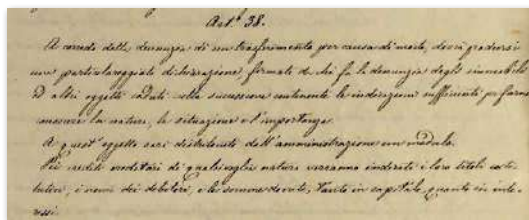 Art.° 38.
A corredo della denunzia di un trasferimento per causa di morte, dovrà prodursi
una particolareggiata dichiarazione, firmata da chi fa la denunzia degli immobili
ed altri oggetti caduti nella successione contenente le indicazioni sufficienti per farne
conoscere la natura, la situazione e l'importanza.
A quest'oggetto sarà distribuito dall'amministrazione un modulo.
Pei crediti ereditari di qualsivoglia natura verranno indicati i loro titoli costi-
tutivi, i nomi dei debitori, e le somme dovute, tanto in capitale, quanto in inte-
ressi.